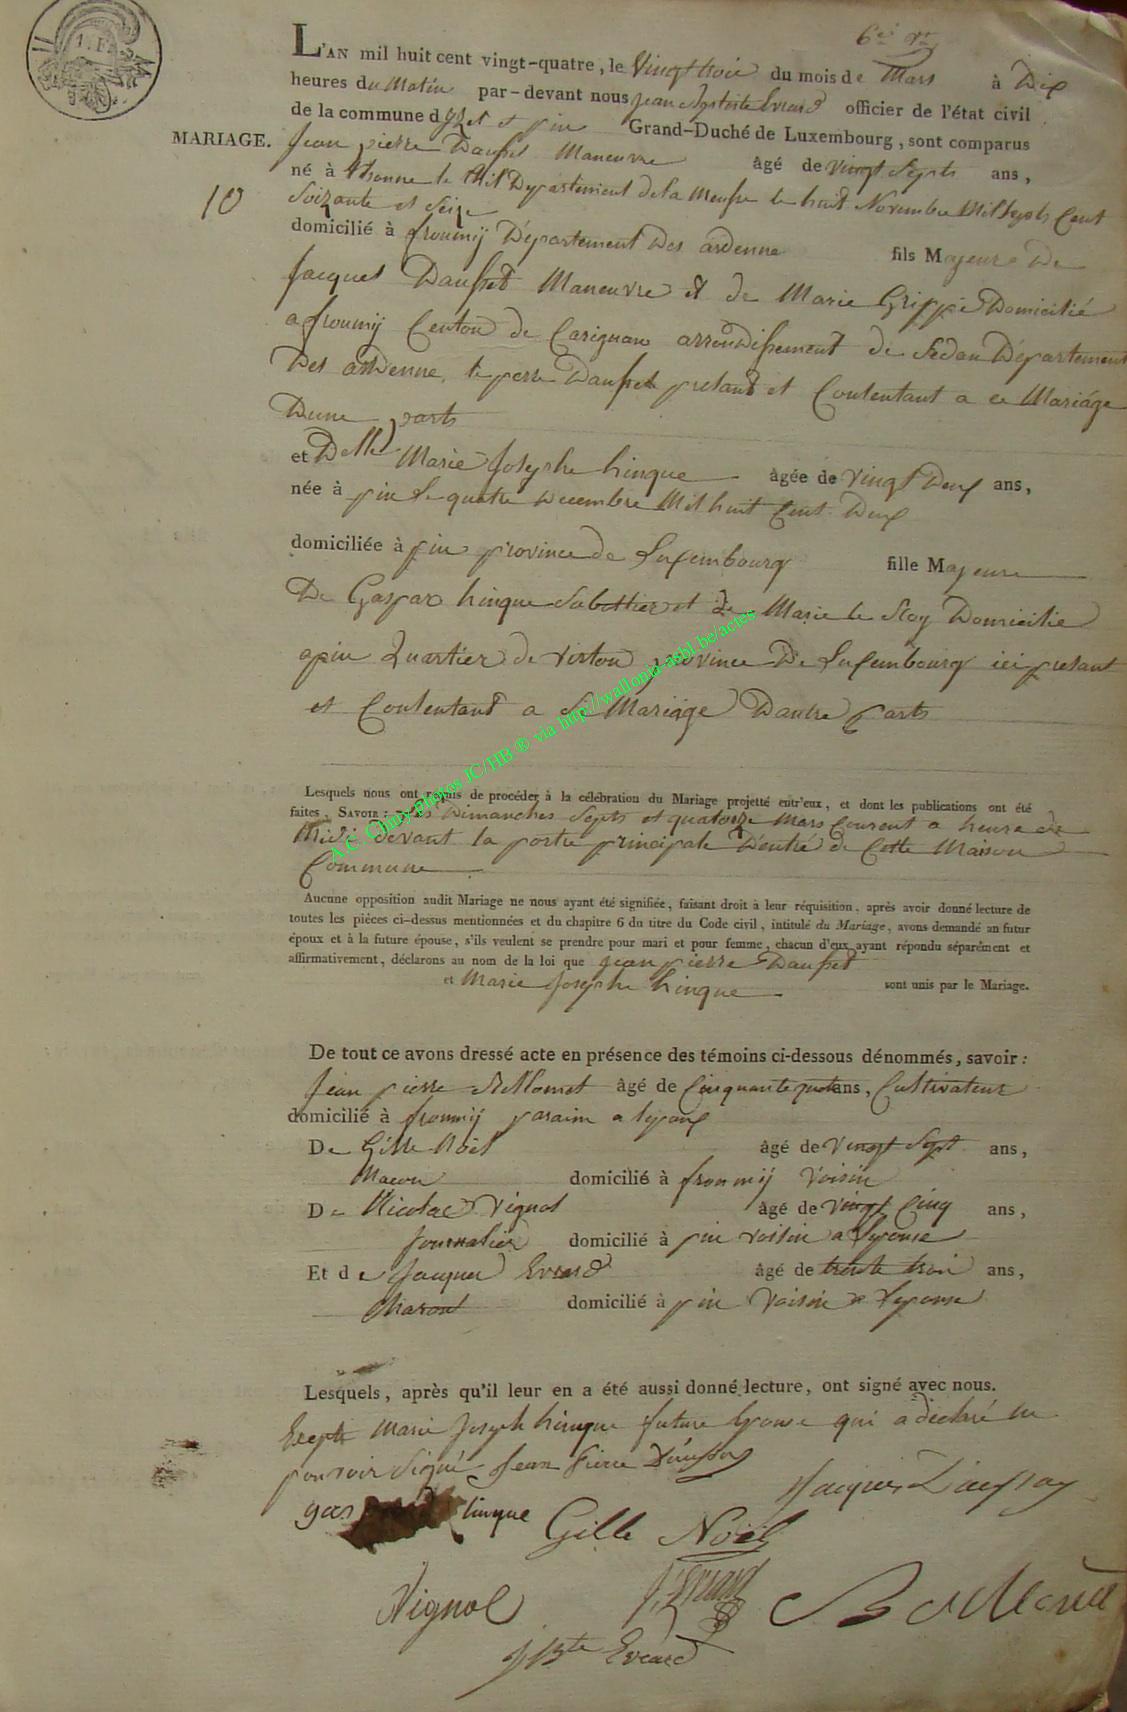 L'AN mil huit cent vingt-quatre, le Vingt trois du mois de Mars à Dix
heures du Matin par-devant nous Jean Bptiste Evrard officier de l'état civil
de la commune d et pin Grand-Duché de Luxembourg, sont comparus
MARIAGE. Jean pierre Daufset Maneuvre âgé de vingt Septs ans,
10
né à thonne le thil Departement de la Meusse le huit Novembre Mil Septs Cent
Soixante et Seize
domicilié à froumij Département Des ardenne fils Majeure De
Jacques Daufset Maneuvre et de Marie Grippe Domicilié
a froumij Centon de Carignan arrondissement de Sedan Département
Des ardenne, le perre Daufset presant et Contentant a ce Mariage
Dune parts
et Delle Marie Josephe hinque âgée de vingt Deux ans,
née à pin le quatre Decembre Mil huit Cent Deux
domiciliée à pin province de Luxembourg fille Majeure
De Gaspar hinque Sabottier et de Marie le Domicilie
apin Quartier de virton province De Luxembourg ici presant
et Contentant a Ce Mariage Dautre parts
A.C. Chiny Photos JC/HB ® via http://wallonia-asbl.be/actes
Lesquels nous ont requis de procéder à la célébration du Mariage projetté entr'eux, et dont les publications ont été
faites, SAVOIR : Dimanches Septs et quatorze Mars Courent a heure de
Midi devant la porte principale D'entré de Cette Maison
Commune
Aucune opposition audit Mariage ne nous ayant été signifiée, faisant droit à leur réquisition, après avoir donné lecture de
toutes les pièces ci-dessus mentionnées et du chapitre 6 du titre du Code civil, intitulé du Mariage, avons demandé au futur
époux et à la future épouse, s'ils veulent se prendre pour mari et pour femme, chacun d'eux ayant répondu séparément et
affirmativement, déclarons au nom de la loi que Jean pierre Daufset
et Marie Josephe hinque sont unis par le Mariage.
De tout ce avons dressé acte en présence des témoins ci-dessous dénommés, savoir :
Jean pierre âgé de Cinquante ans, Cultivateur
domicilié à froumij parain a lepoux
De Gille Noël âgé de vingt Sept ans,
Macon domicilié à froumij voisin
De Nicolas Vignol âgé de vingt Cinq ans,
Journalier domicilié à pin voisin a lepouse
Et de Jacques Evrard âgé de trente trois ans,
Charon domicilié à pin voisin a lepouse
Lesquels, après qu'il leur en a été aussi donné lecture, ont signé avec nous.
Exepte Marie Joseph hinque future Epouse qui a déclaré ne
pouvoir Signé Jean Pierre
Jacques
gas hinque Gille Noël
Vignol J. Evrard
J Bte Evrard